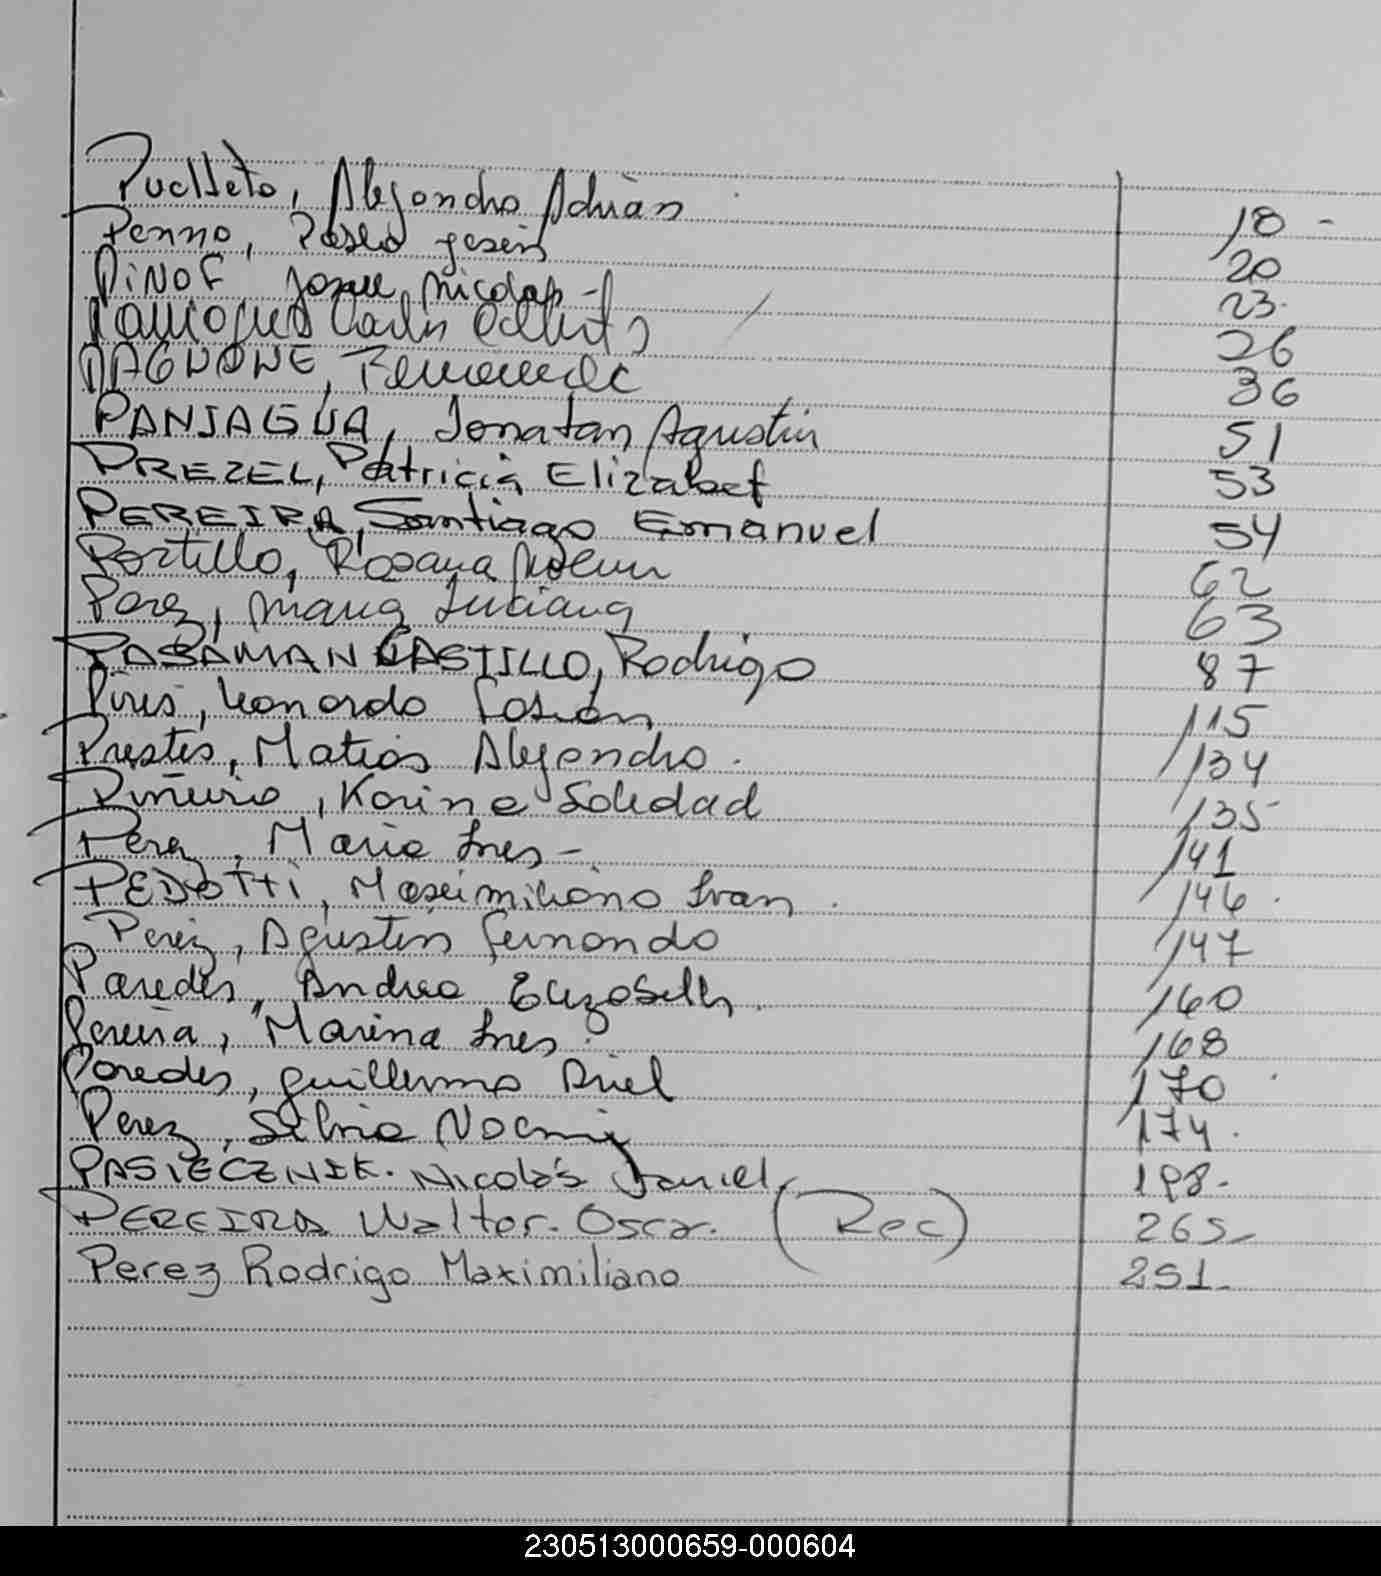 Alejandro Adrián 18 -
Penno, 20
PINOF Josue Nicolas - 23.
Carlos Alberto 26
PAGNONE, 36
PANIAGUA, Jonatan Agustin 51
PREZEL, Patricia Elizabet 53
PEREIRA, Santiago Emanuel 54
Portillo, Rosana Noemi 62
Perez, Maria Luciana 63
PASAMAN CASTILLO, Rodrigo 87
Pires, Leonardo Fabian 115
Prestes, Matias Alejandro. 134
Piñeiro, Karina Soledad 135
Perez, Maria Ines - 141
PEDOTTi, Maximiliano Ivan. 146.
Perez, Agustin Fernando 147
Paredes, Andrea Elizabeth. 160
Pereira, Marina Ines. 168
Paredes, Guillermo Ariel 170
Perez, Silvia Noemi 174.
PASIECZNIK. Nicolás Daniel. 198.
PEREIRA Walter. Oscar. (Rec) 265-
Perez Rodrigo Maximiliano 251-
230513000659-000604